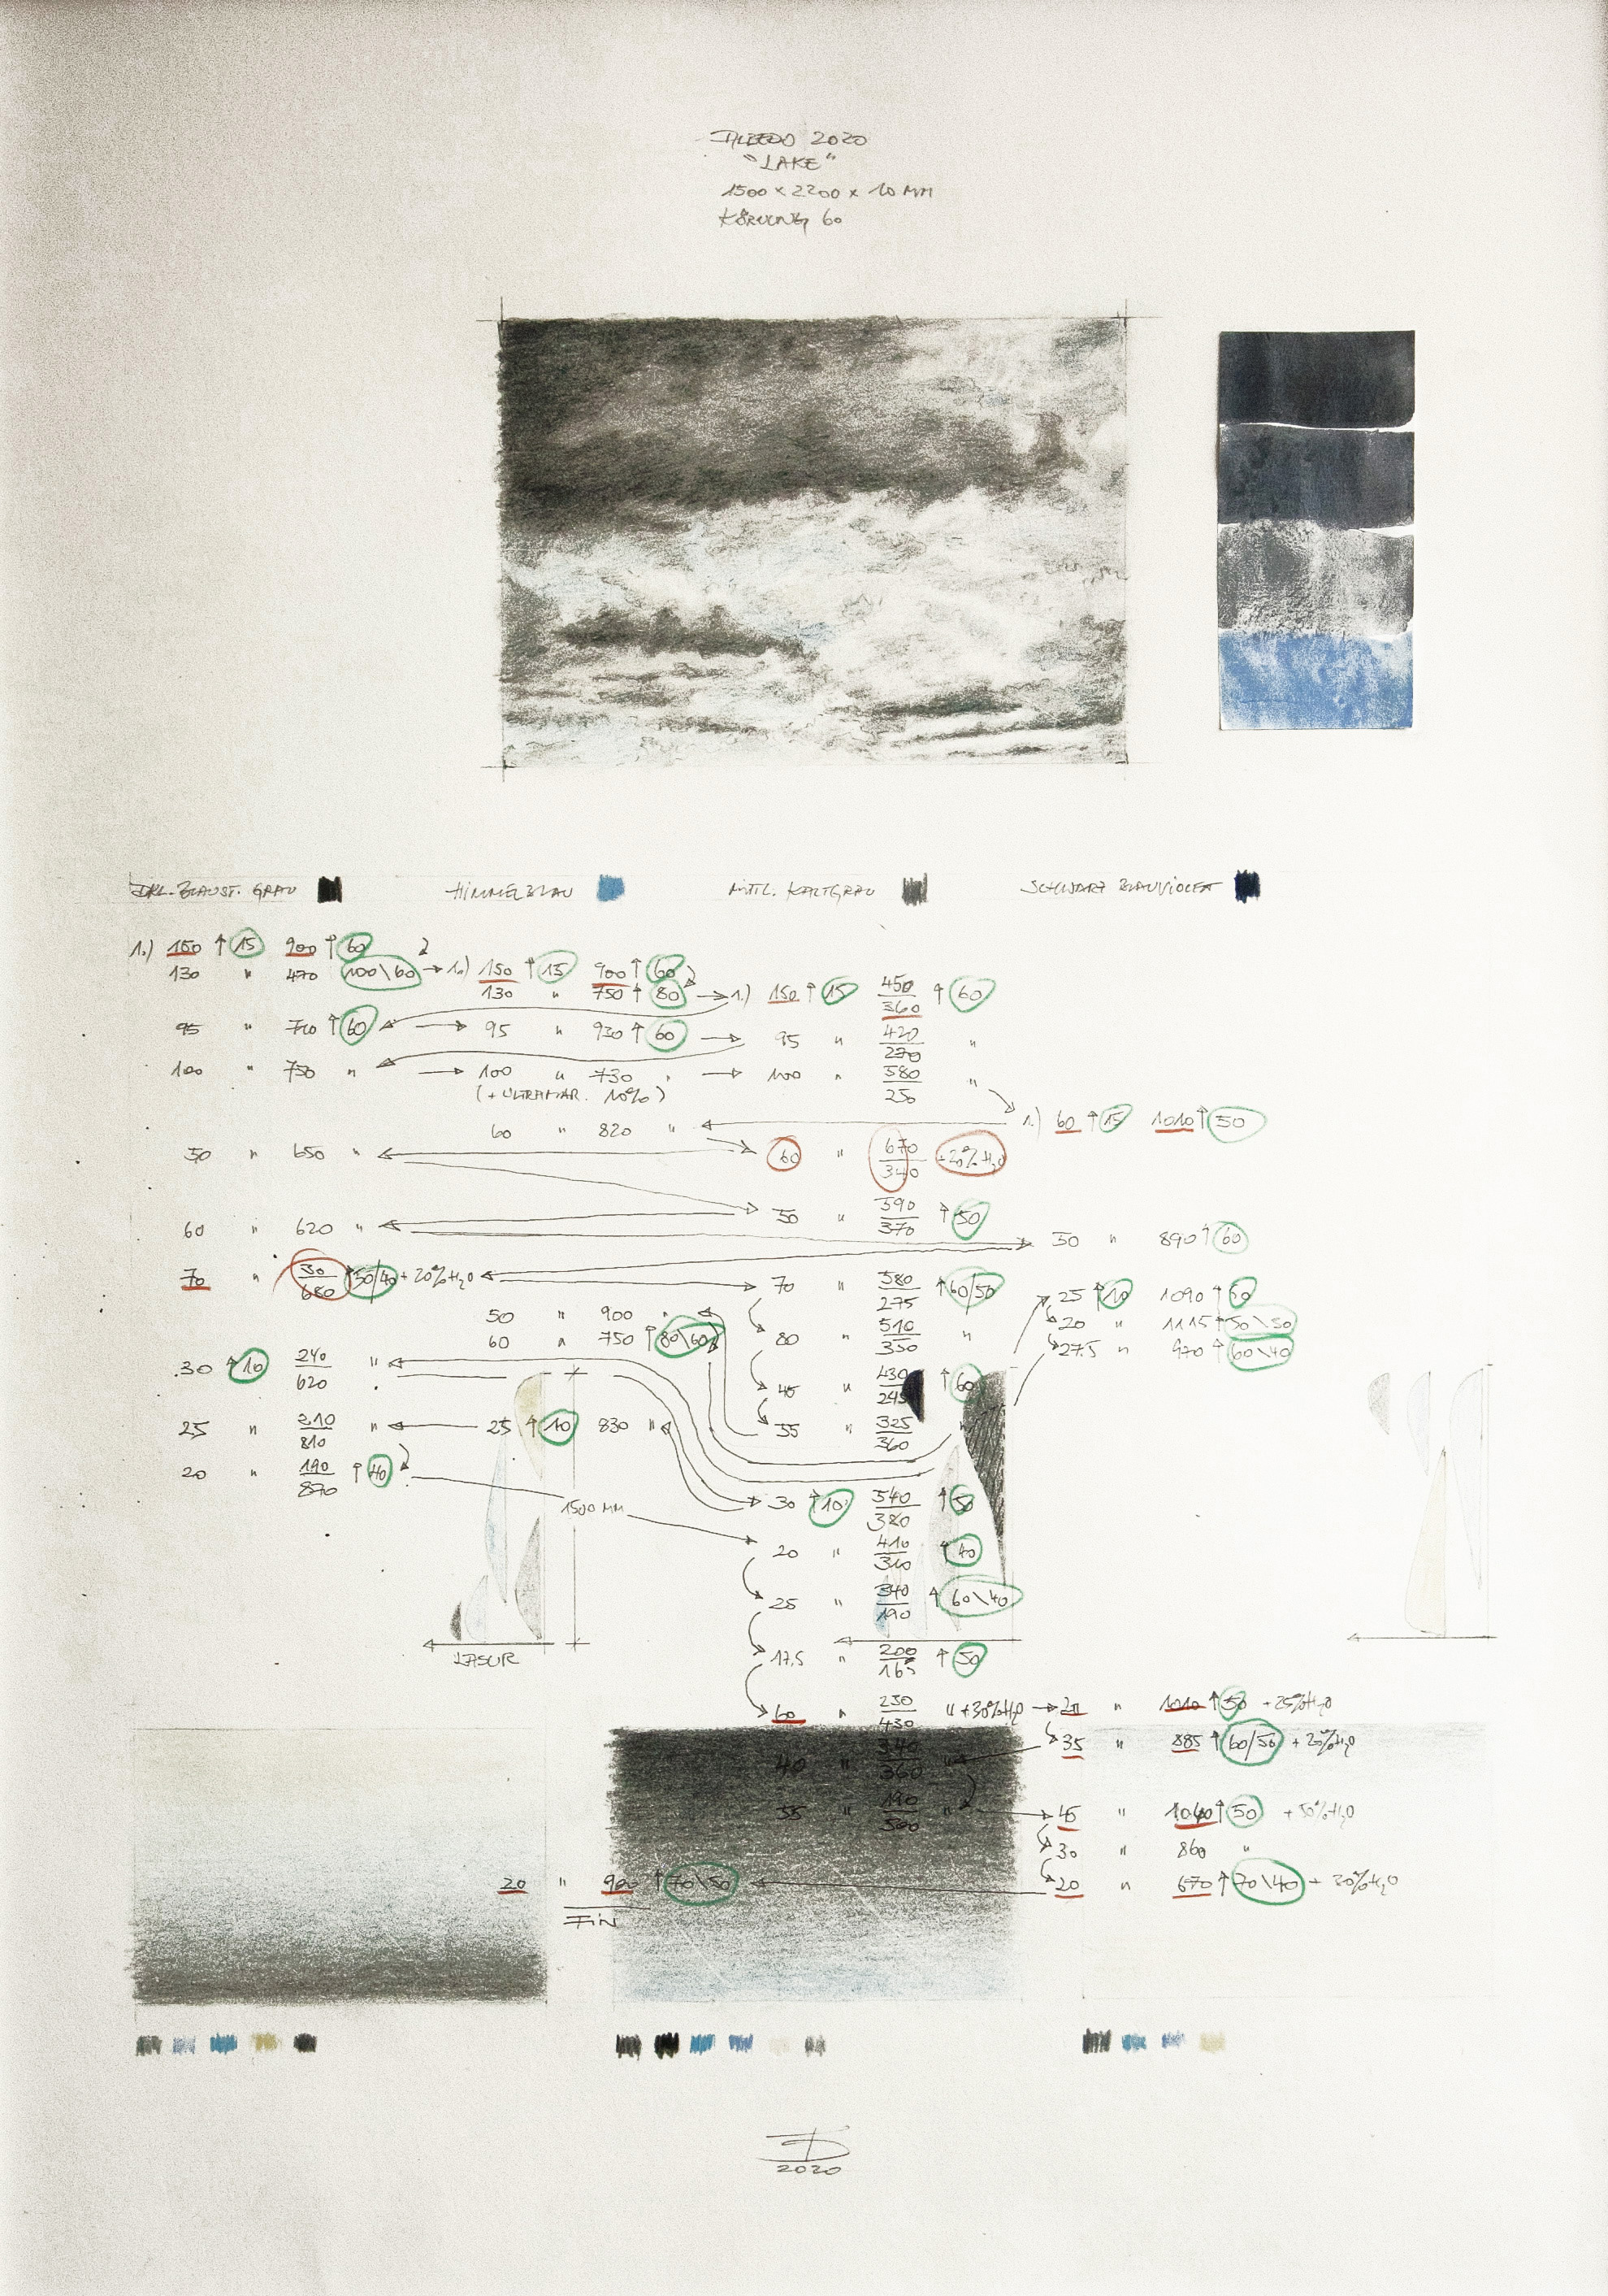 2020
"LAKE"
1500 x 2200 x 10 MM
KÖRNUNG 60
DKL. BLAUST. GRAU HIMMELBLAU MITTL. KALTGRAU SCHWARZ BLAUVIOLETT
1.) 150 ↑ 15 900 ↑ 60
130 " 470 100\60 → 1.) 150 ↑ 15 900 ↑ 60
130 " 750 ↑ 80 → 1.) 150 ↑ 15 450/360 ↑ 60
95 " 710 ↑ 60 → 95 " 930 ↑ 60 → 95 " 420/270 "
100 " 750 " → 100 " 730 " → 100 " 580/250 "
(+ ULTRAMAR. 10%)
60 " 820 " ← 1.) 60 ↑ 15 1010 ↑ 50
50 " 650 " 60 " 670/340 +20% H2O
50 " 590/370 ↑ 50
60 " 620 " 50 " 890 ↑ 60
70 " 30/680 ↑ 50/40 + 20% H2O 70 " 580/275 ↑ 60/50
25 ↑ 10 1090 ↑ 50
50 " 900 " 20 " 1115 ↑ 50\50
60 " 750 ↑ 80\60 80 " 510/350 " 27.5 " 970 ↑ 60\40
30 ↑ 10 240/620 " 45 " 430/245 ↑ 60
25 " 210/810 " ← 25 ↑ 10 830 " 55 " 325/360 "
20 " 190/870 ↑ 40
1500 MM 30 ↑ 10 540/380 ↑ 50
20 " 410/310 ↑ 40
25 " 340/190 ↑ 60\40
LASUR 17.5 " 200/165 ↑ 50
60 " 230/430 " +30% H2O → 20 " 1010 ↑ 50 +25% H2O
40 " 340/360 " 35 " 885 ↑ 60/50 + 20% H2O
55 " 190/500 " 45 " 1040 ↑ 50 +50% H2O
30 " 860 "
20 " 900 ↑ 70\50 ← 20 " 670 ↑ 70\40 + 30% H2O
FIN
2020